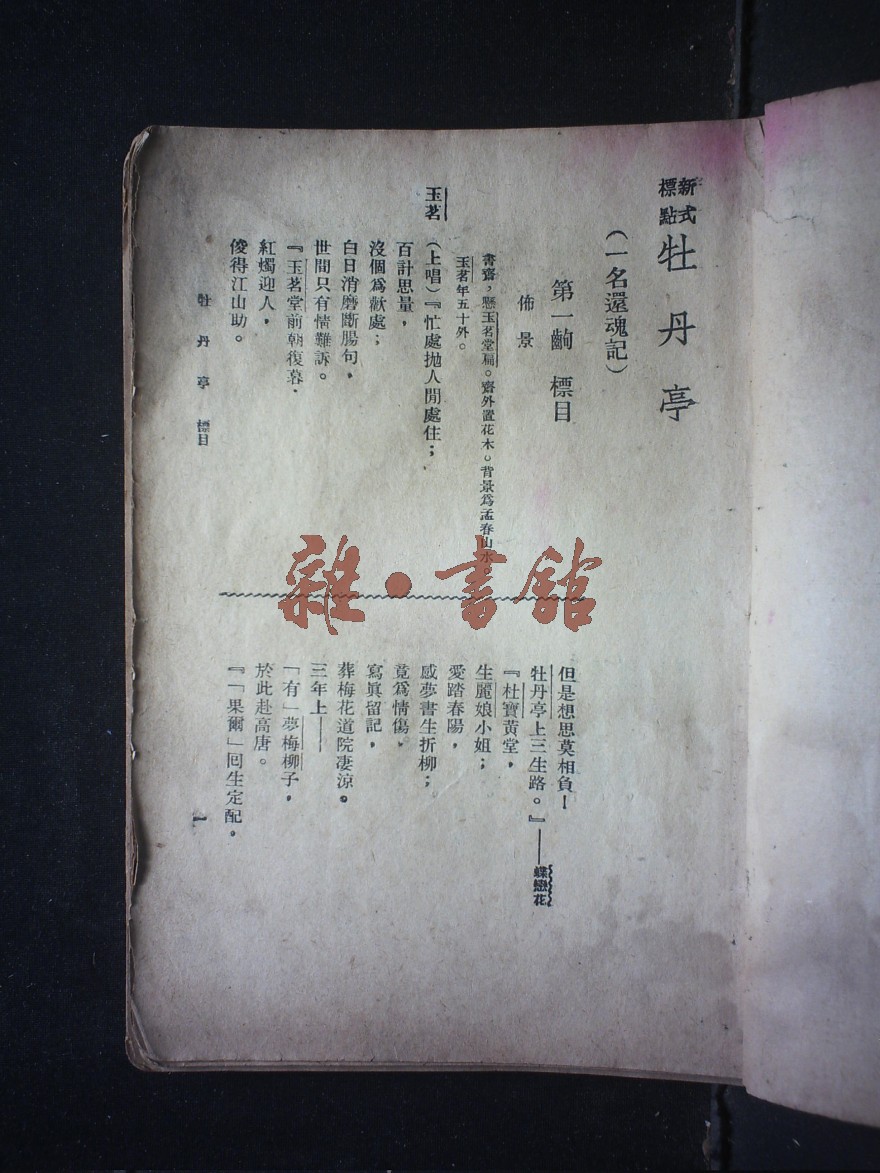 新式標點 牡丹亭
(一名還魂記)
第一齣 標目
佈景
書齋,懸玉茗堂扁。齋外置花木。背景爲孟春山水。
玉茗年五十外。
玉茗 (上唱)『忙處拋人閒處住;
百計思量,
沒個爲歡處;
白日消磨斷腸句,
世間只有情難訴。
『玉茗堂前朝復暮,
紅燭迎人,
俊得江山助。
但是想思莫相負!
牡丹亭上三生路。』——蝶戀花
『杜寶黃堂,
生麗娘小姐;
愛踏春陽,
感夢書生折柳;
竟爲情傷。
寫眞留記,
葬梅花道院凄涼。
三年上——
「有」夢梅柳子,
於此赴高唐。
『「果爾」回生定配。
牡丹亭 標目
1
雜·書館